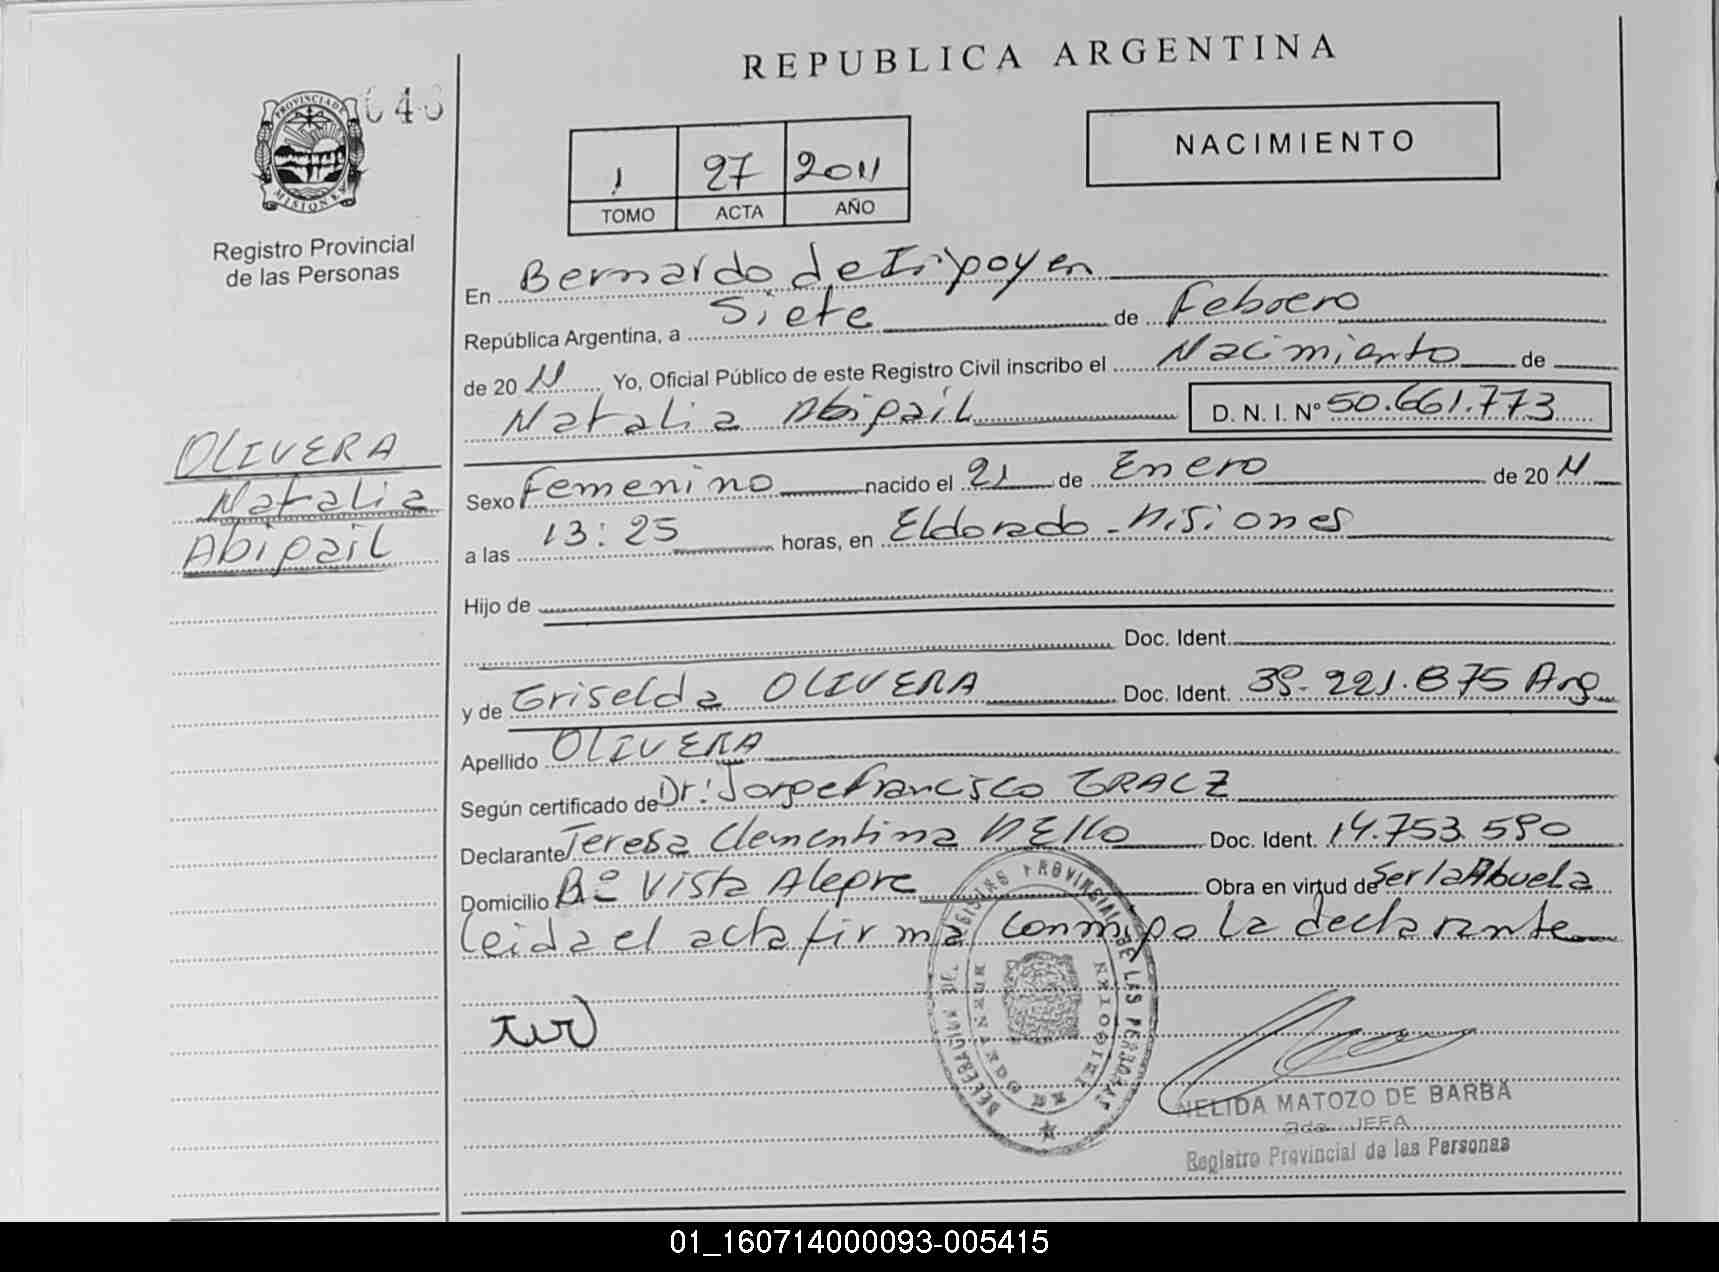 REPUBLICA ARGENTINA
PROVINCIA DE MISIONES
Registro Provincial
de las Personas
1 27 2011
TOMO ACTA AÑO
NACIMIENTO
OLIVERA
Natalia
Abigail
En Bernardo de Irigoyen
República Argentina, a Siete de Febrero
de 20 11 Yo, Oficial Público de este Registro Civil inscribo el Nacimiento de
Natalia Abigail D. N. I. N° 50.661.773
Sexo Femenino nacido el 21 de Enero de 20 11
a las 13:25 horas, en Eldorado - Misiones
Hijo de
Doc. Ident.
y de Griselda OLIVERA Doc. Ident. 39.221.875 Arg
Apellido OLIVERA
Según certificado de Dr: Jorge Francisco GRACZ
Declarante Teresa Clementina MELLO Doc. Ident. 14.753.590
Domicilio B° Vista Alegre Obra en virtud de Ser la Abuela
Leida el acta firma conmigo la declarante
DELEGACION DEL REGISTRO PROVINCIAL DE LAS PERSONAS
NELIDA MATOZO DE BARBA
JEFA
Registro Provincial de las Personas
01_160714000093-005415